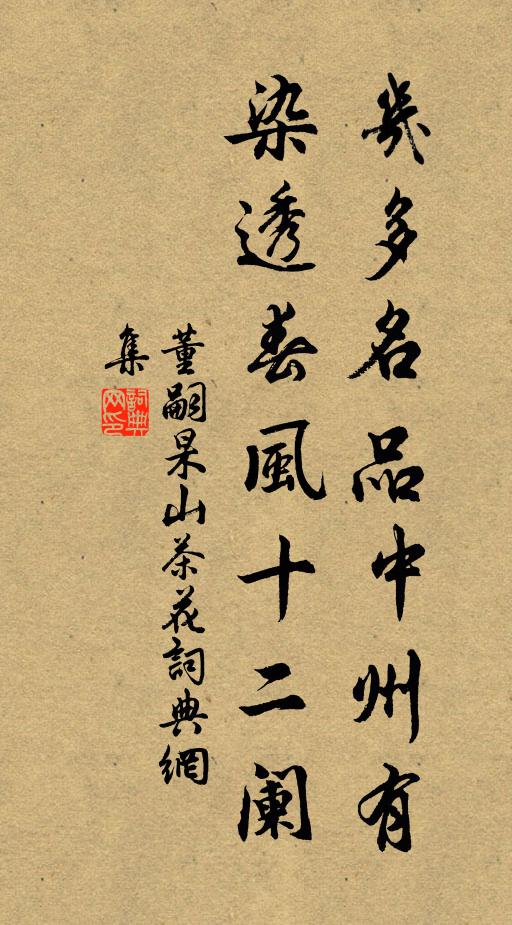 幾多名品中州有
染透春風十二阑
董嗣杲山茶花詞典網
集
詞典
网印